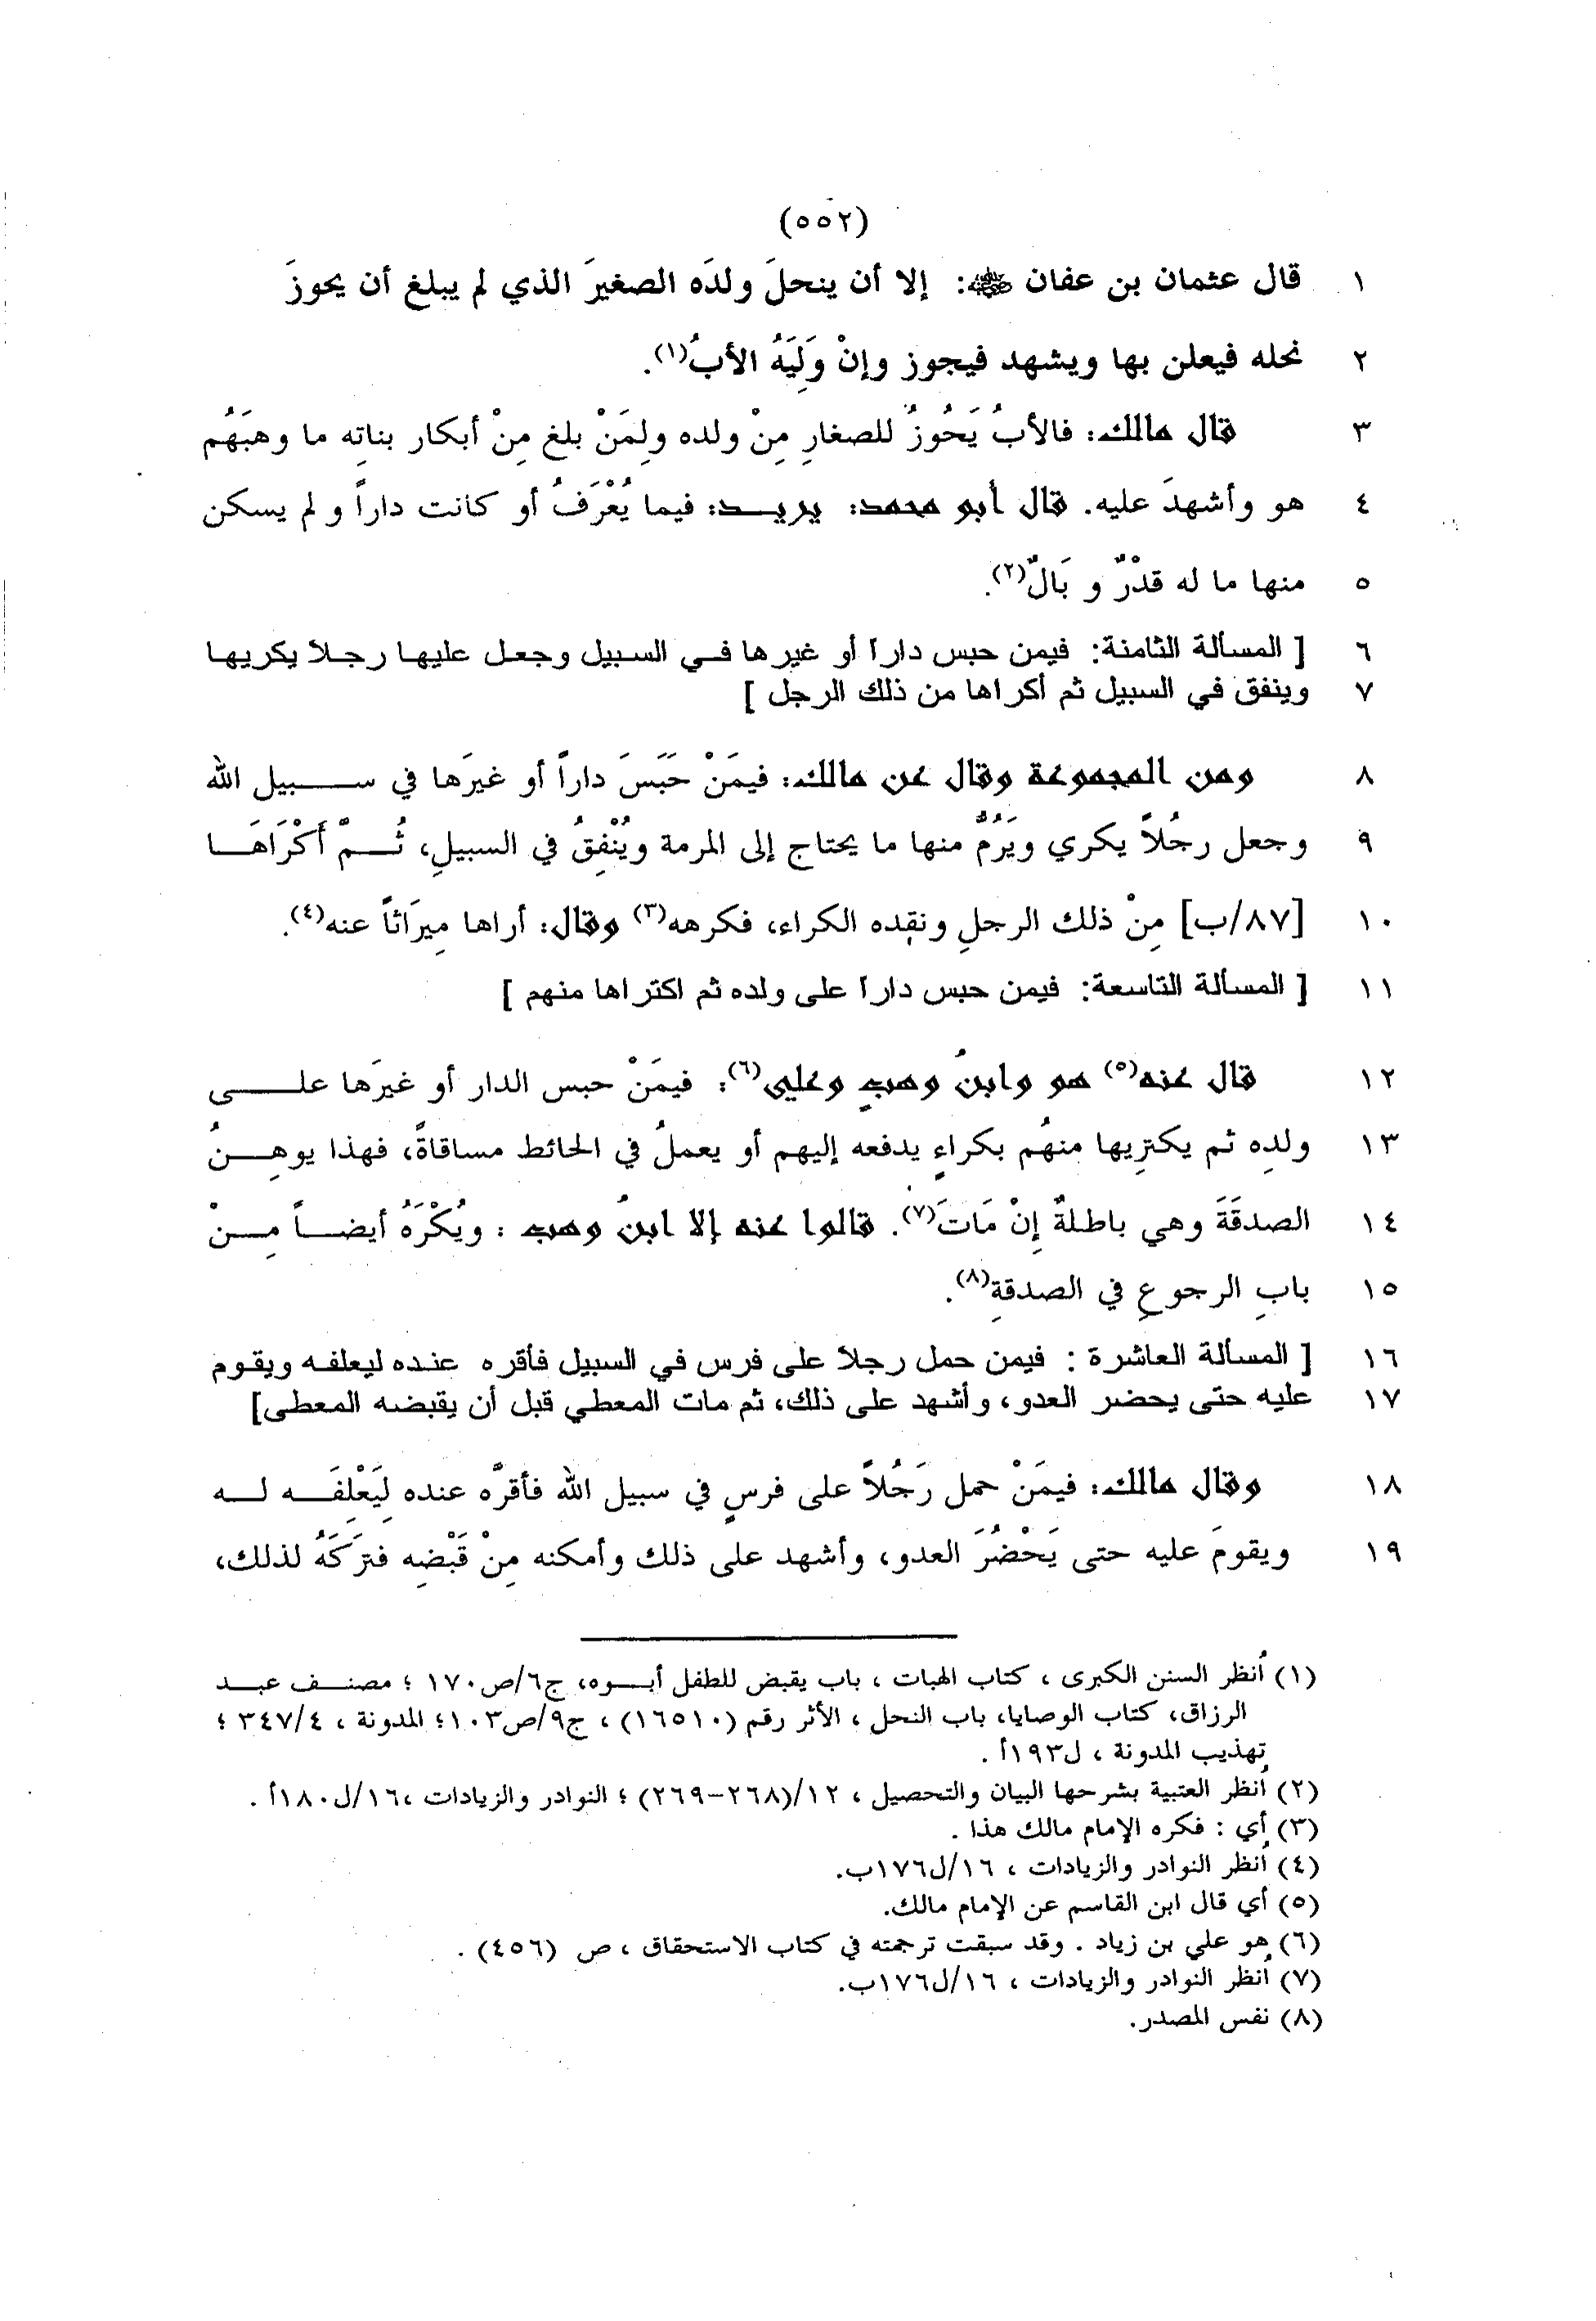 (٥٥٢)
١ قال عثمان بن عفان ﷺ: إلا أن ينحلَ ولدَه الصغيرَ الذي لم يبلغ أن يحوزَ
٢ نحله فيعلن بها ويشهد فيجوز وإنْ وَلِيَهُ الأبُ(١).
٣ قال مالك: فالأبُ يَحُوزُ للصغارِ مِنْ ولده ولِمَنْ بلغ مِنْ أبكار بناتِه ما وهبَهُم
٤ هو وأشهدَ عليه. قال أبو محمد: يريد: فيما يُعْرَفُ أو كانت داراً و لم يسكن
٥ منها ما له قدْرٌ و بَالٌ(٢).
٦ [ المسألة الثامنة: فيمن حبس داراً أو غيرها في السبيل وجعل عليها رجلاً يكريها
٧ وينفق في السبيل ثم أكراها من ذلك الرجل ]
٨ ومن المجموعة وقال عن مالك: فيمَنْ حَبَسَ داراً أو غيرَها في سبيل الله
٩ وجعل رجُلاً يكري ويَرُمُّ منها ما يحتاج إلى المرمة ويُنْفِقُ في السبيلِ، ثُمَّ أَكْرَاهَا
١٠ [٨٧/ب] مِنْ ذلك الرجلِ ونقده الكراء، فكرهه(٣) وقال: أراها مِيرَاثاً عنه(٤).
١١ [ المسألة التاسعة: فيمن حبس داراً على ولده ثم اكتراها منهم ]
١٢ قال عنه(٥) هو وابنُ وهبٍ وعلي(٦): فيمَنْ حبس الدار أو غيرَها على
١٣ ولدِه ثم يكترِيها منهُم بكراءٍ يدفعه إليهم أو يعملُ في الحائط مساقاةً، فهذا يوهِنُ
١٤ الصدقَةَ وهي باطلةٌ إِنْ مَاتَ(٧). قالوا عنه إلا ابنُ وهب : ويُكْرَهُ أيضاً مِنْ
١٥ بابِ الرجوعِ في الصدقةِ(٨).
١٦ [ المسألة العاشرة : فيمن حمل رجلاً على فرس في السبيل فأقره عنده ليعلفه ويقوم
١٧ عليه حتى يحضر العدو، وأشهد على ذلك، ثم مات المعطي قبل أن يقبضه المعطى]
١٨ وقال مالك: فيمَنْ حمل رَجُلاً على فرسٍ في سبيل الله فأقرَّه عنده لِيَعْلِفَه له
١٩ ويقومَ عليه حتى يَحْضُرَ العدو، وأشهد على ذلك وأمكنه مِنْ قَبْضِه فتَرَكَهُ لذلك،
(١) أُنظر السنن الكبرى ، كتاب الهبات ، باب يقبض للطفل أبوه، ج٦/ص١٧٠ ؛ مصنف عبد
الرزاق، كتاب الوصايا، باب النحل ، الأثر رقم (١٦٥١٠) ، ج٩/ص١٠٣؛ المدونة ، ٣٤٧/٤ ؛
تهذيب المدونة ، ل١٩٣أ .
(٢) أُنظر العتبية بشرحها البيان والتحصيل ، ١٢/(٢٦٨-٢٦٩) ؛ النوادر والزيادات ،١٦/ل١٨٠أ .
(٣) أي : فكره الإمام مالك هذا .
(٤) أُنظر النوادر والزيادات ، ١٦/ل١٧٦ب.
(٥) أي قال ابن القاسم عن الإمام مالك.
(٦) هو علي بن زياد . وقد سبقت ترجمته في كتاب الاستحقاق ، ص (٤٥٦) .
(٧) أُنظر النوادر والزيادات ، ١٦/ل١٧٦ب.
(٨) نفس المصدر.